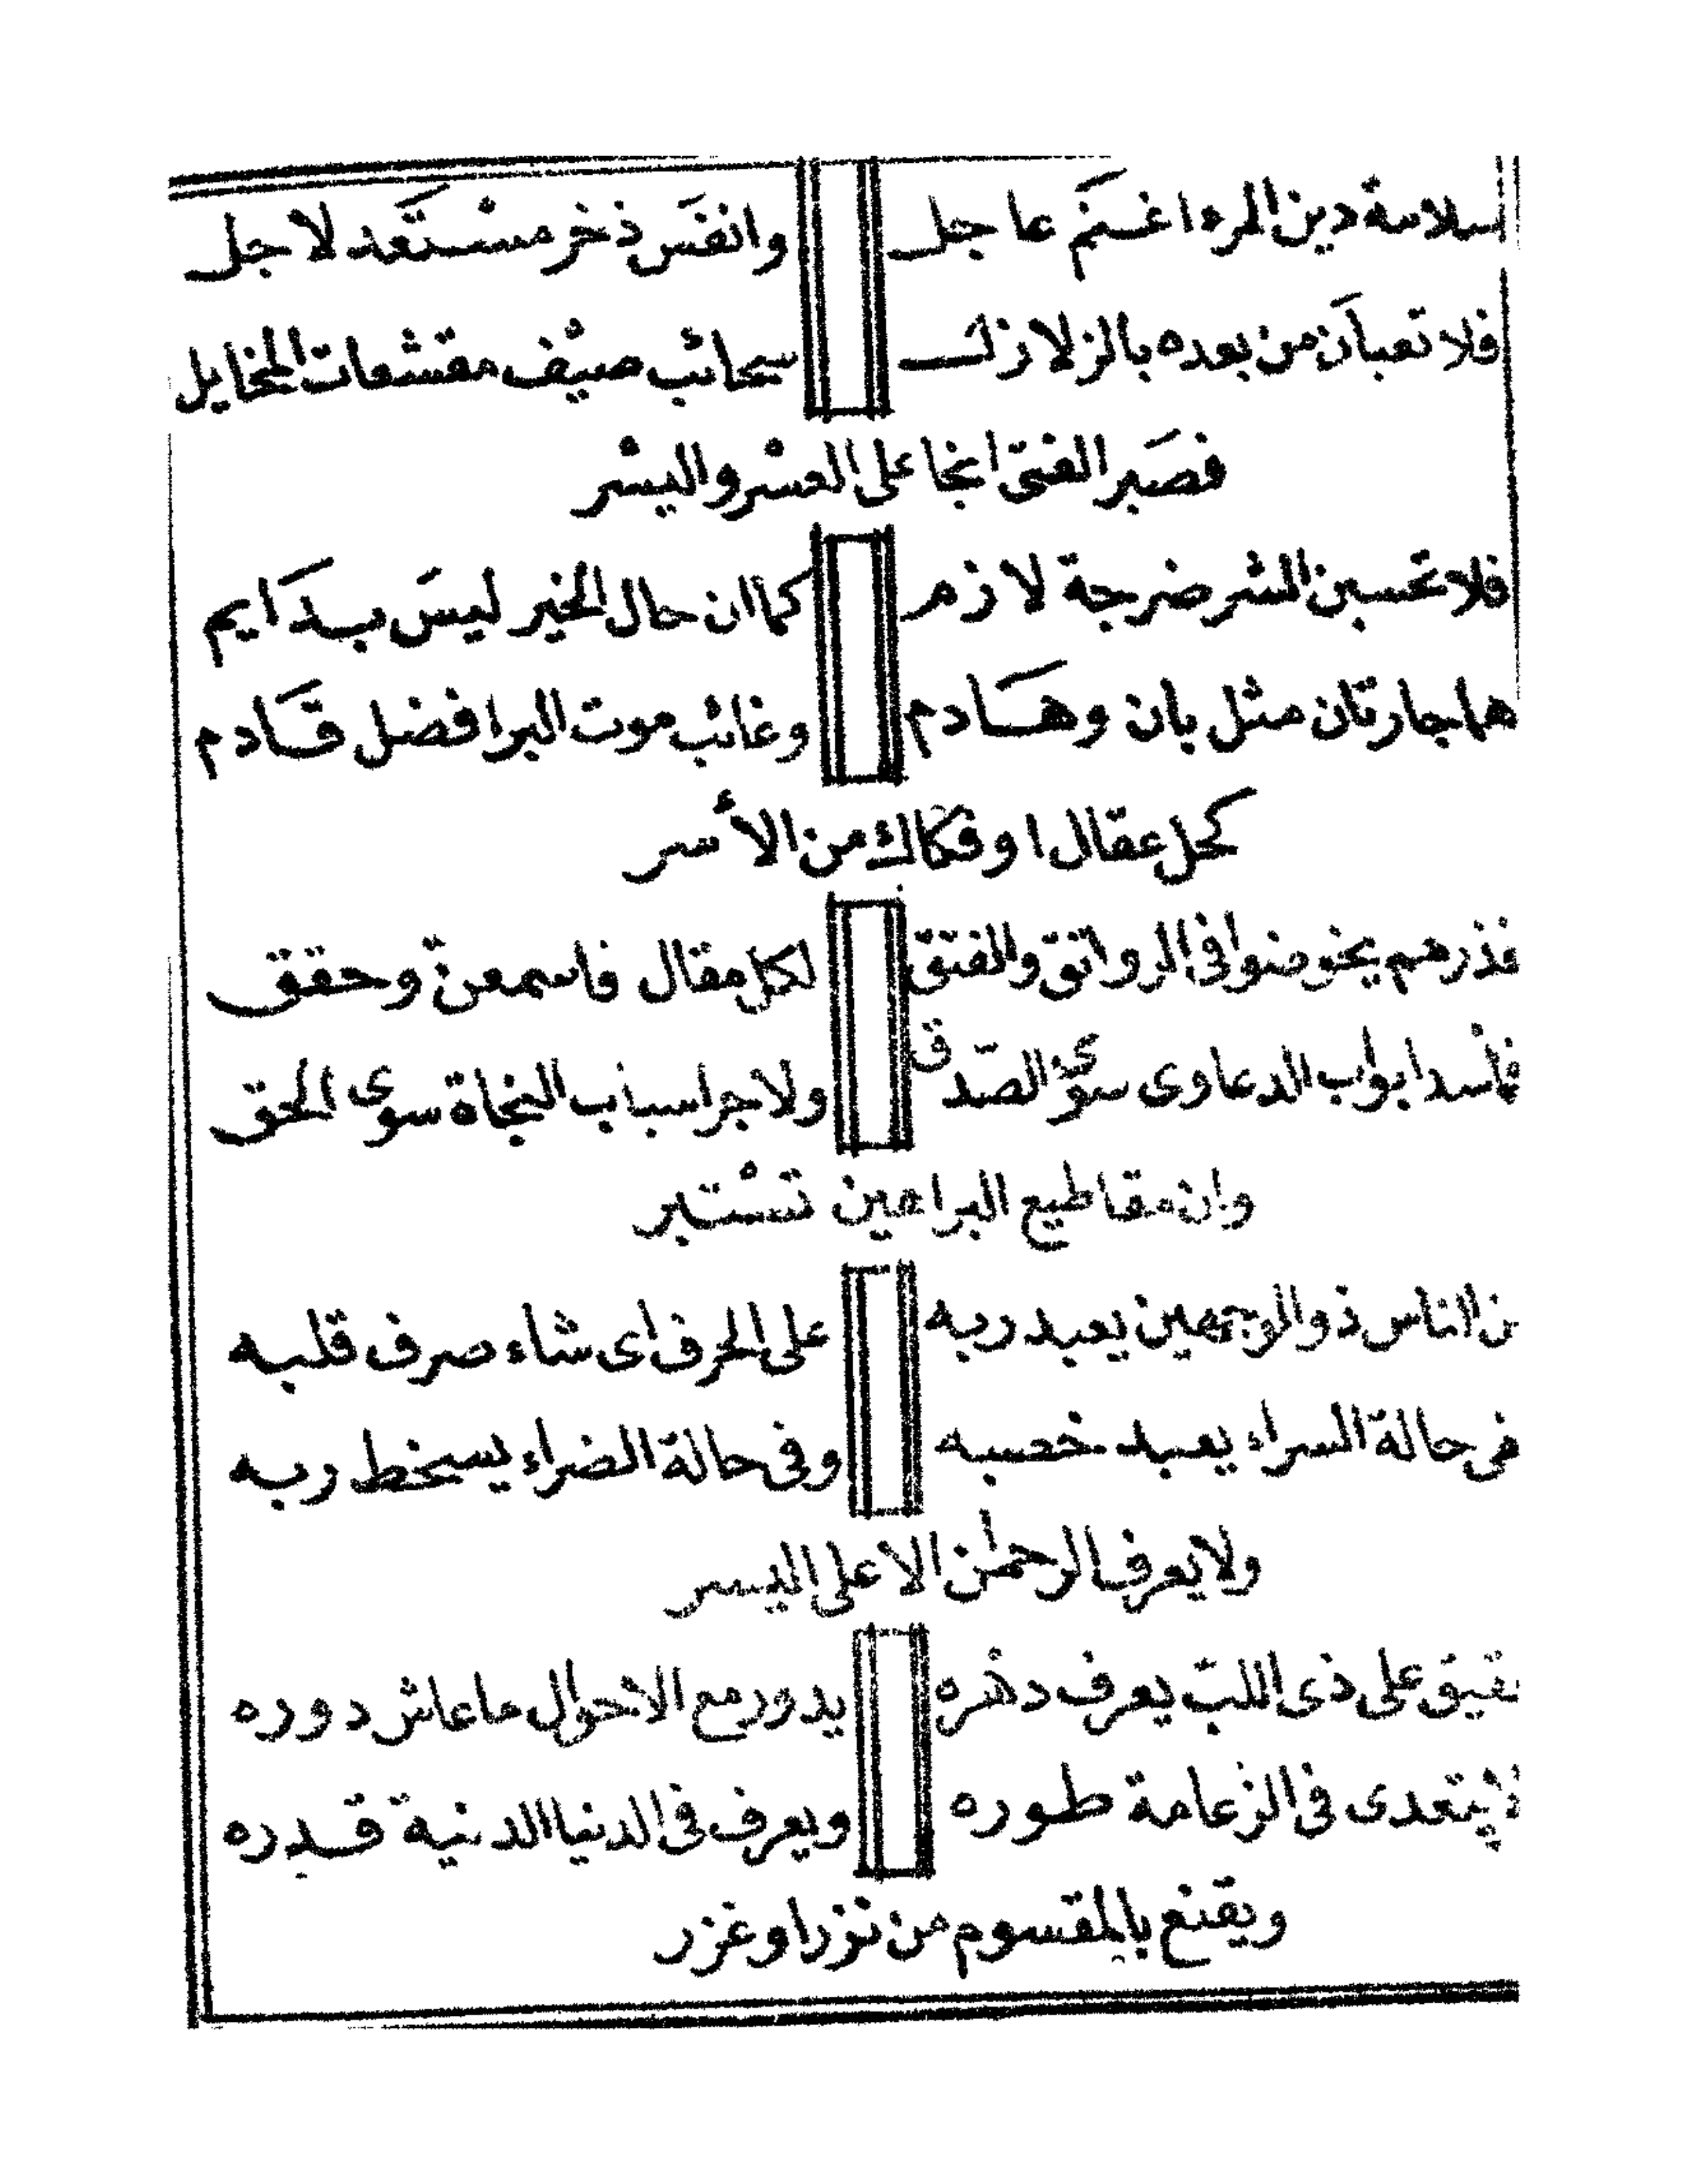 سلامة دين المرء اغنم عاجل وانفس ذخر مستعد لاجل
فلا تعبأن من بعده بالزلازل سحائب صيف مقشعات المخايل
فصبر الفتى انجا على العسر واليسر
فلا تحسبن الشر ضرجة لازم كما ان حال الخير ليس بدايم
هما جارتان مثل بان وهادم وغائب موت البر افضل قادم
كحل عقال او فكاك من الأسر
فذرهم يخوضوا فى الرواتق والفتق لكل مقال فاسمعن وحقق
فما سد ابواب الدعاوى سوى الصدق ولا جر اسباب النجاة سوى الحق
وان مقاطيع البراهين تستبر
من الناس ذو الوجهين يعبد ربه على الحرف اى شاء صرف قلبه
فى حالة السراء يعبد خصبه وفى حالة الضراء يسخط ربه
ولا يعرف الرحمن الا على اليسر
حقيق على ذى اللب يعرف دهره يدور مع الاحوال ما عاش دوره
لا يتعدى فى الزعامة طوره ويعرف فى الدنيا الدنية قدره
ويقنع بالمقسوم من نزر او غزر